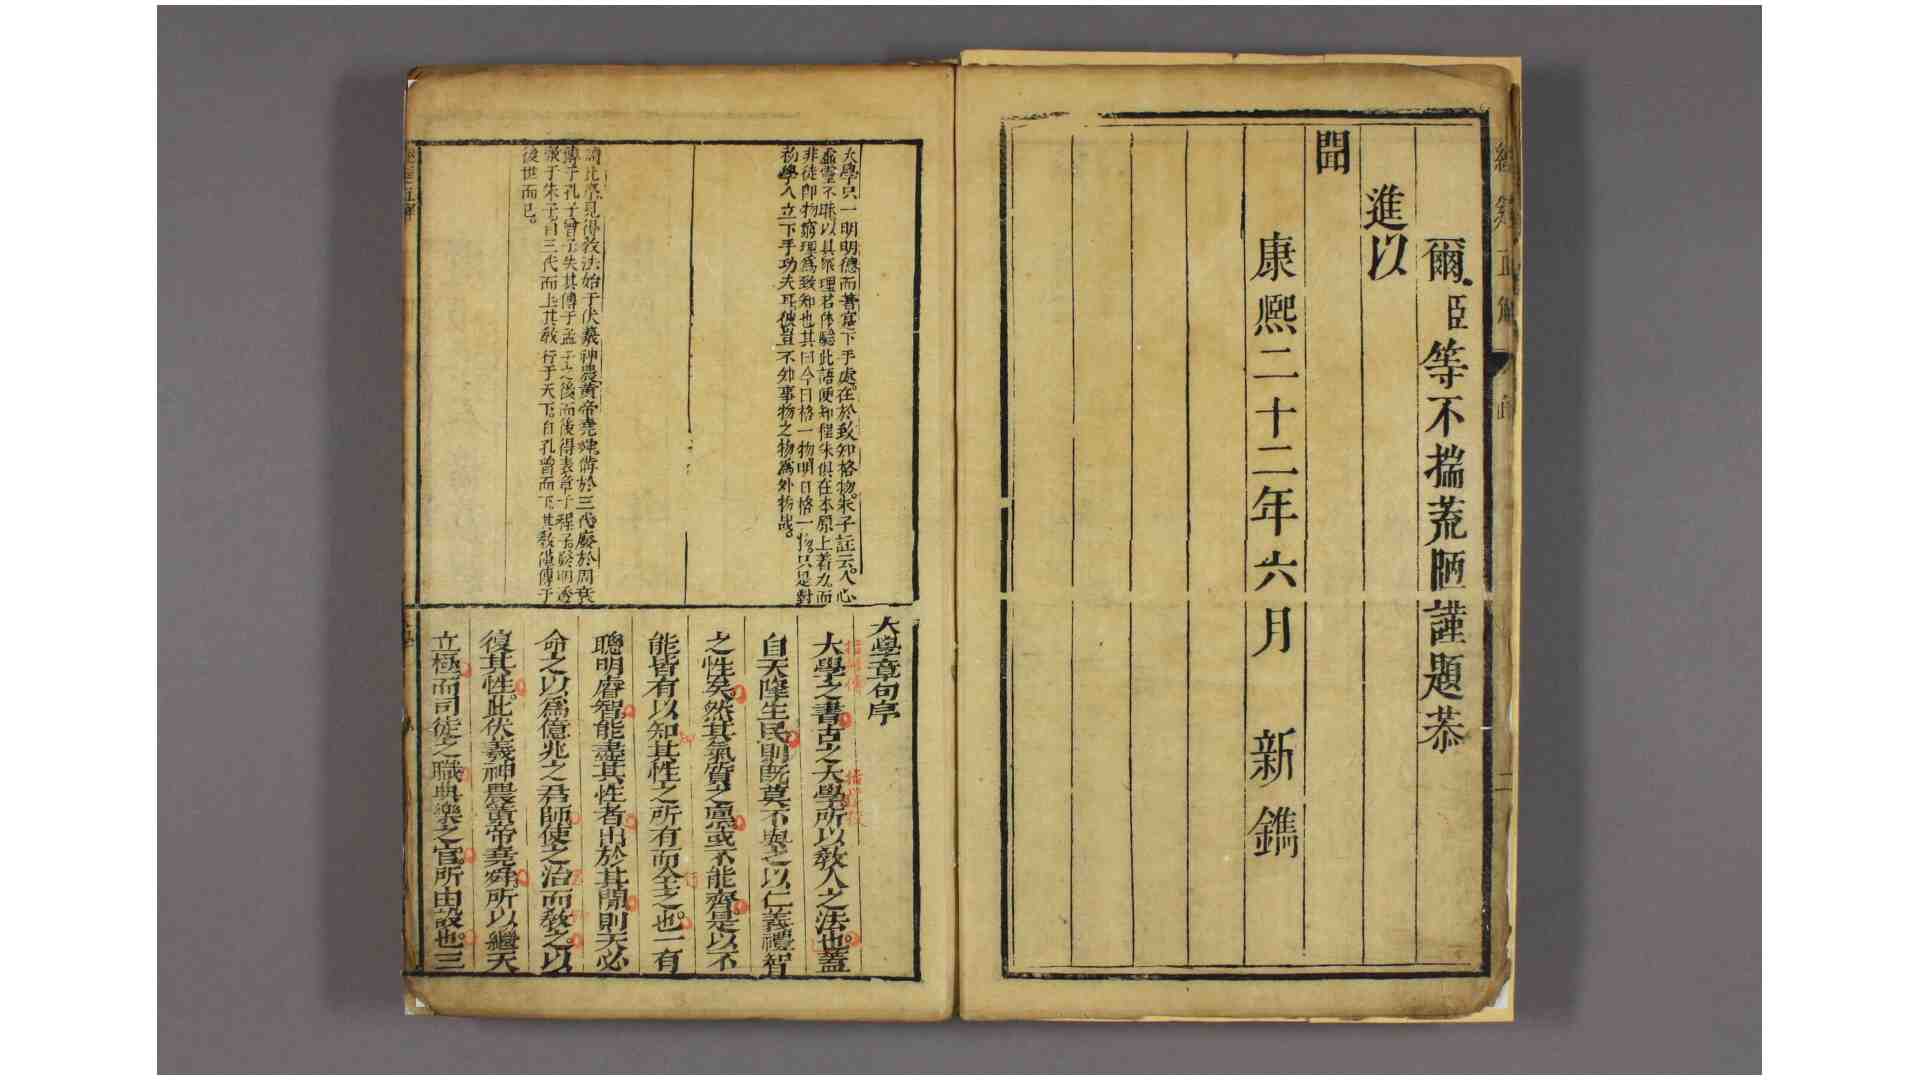 爾臣等不揣荒陋謹題恭
進以
聞
康熙二十二年六月 新鐫
大學只一明明德而著寔下手處在於致知格物。朱子註云。人心
虛靈不昧以具衆理若体驗此語便知程朱俱在本原上着力而
非徒即物窮理爲致知也其曰今日格一物明日格一物只是對
初學人立下手功夫耳彼豈不知事物之物爲外物哉。
請此學見得敎法始于伏羲神農黃帝堯舜備於三代廢於周衰
傳于孔子曾子失其傳于孟子之後而後得表章于程子發明透
徹于朱子。自三代而上其敎行于天下。自孔曾而下。其敎僅傳于
後世而已。
大學章句序
大學之書古之大學所以敎人之法也。蓋
自天降生民則旣莫不與之以仁義禮智
之性矣。然其氣質之稟或不能齊。是以不
能皆有以知其性之所有而全之也。一有
聰明睿智能盡其性者出於其閒則天必
命之以爲億兆之君師使之治而敎之。以
復其性。此伏羲神農黃帝堯舜。所以繼天
立極而司徒之職典樂之官。所由設也。三